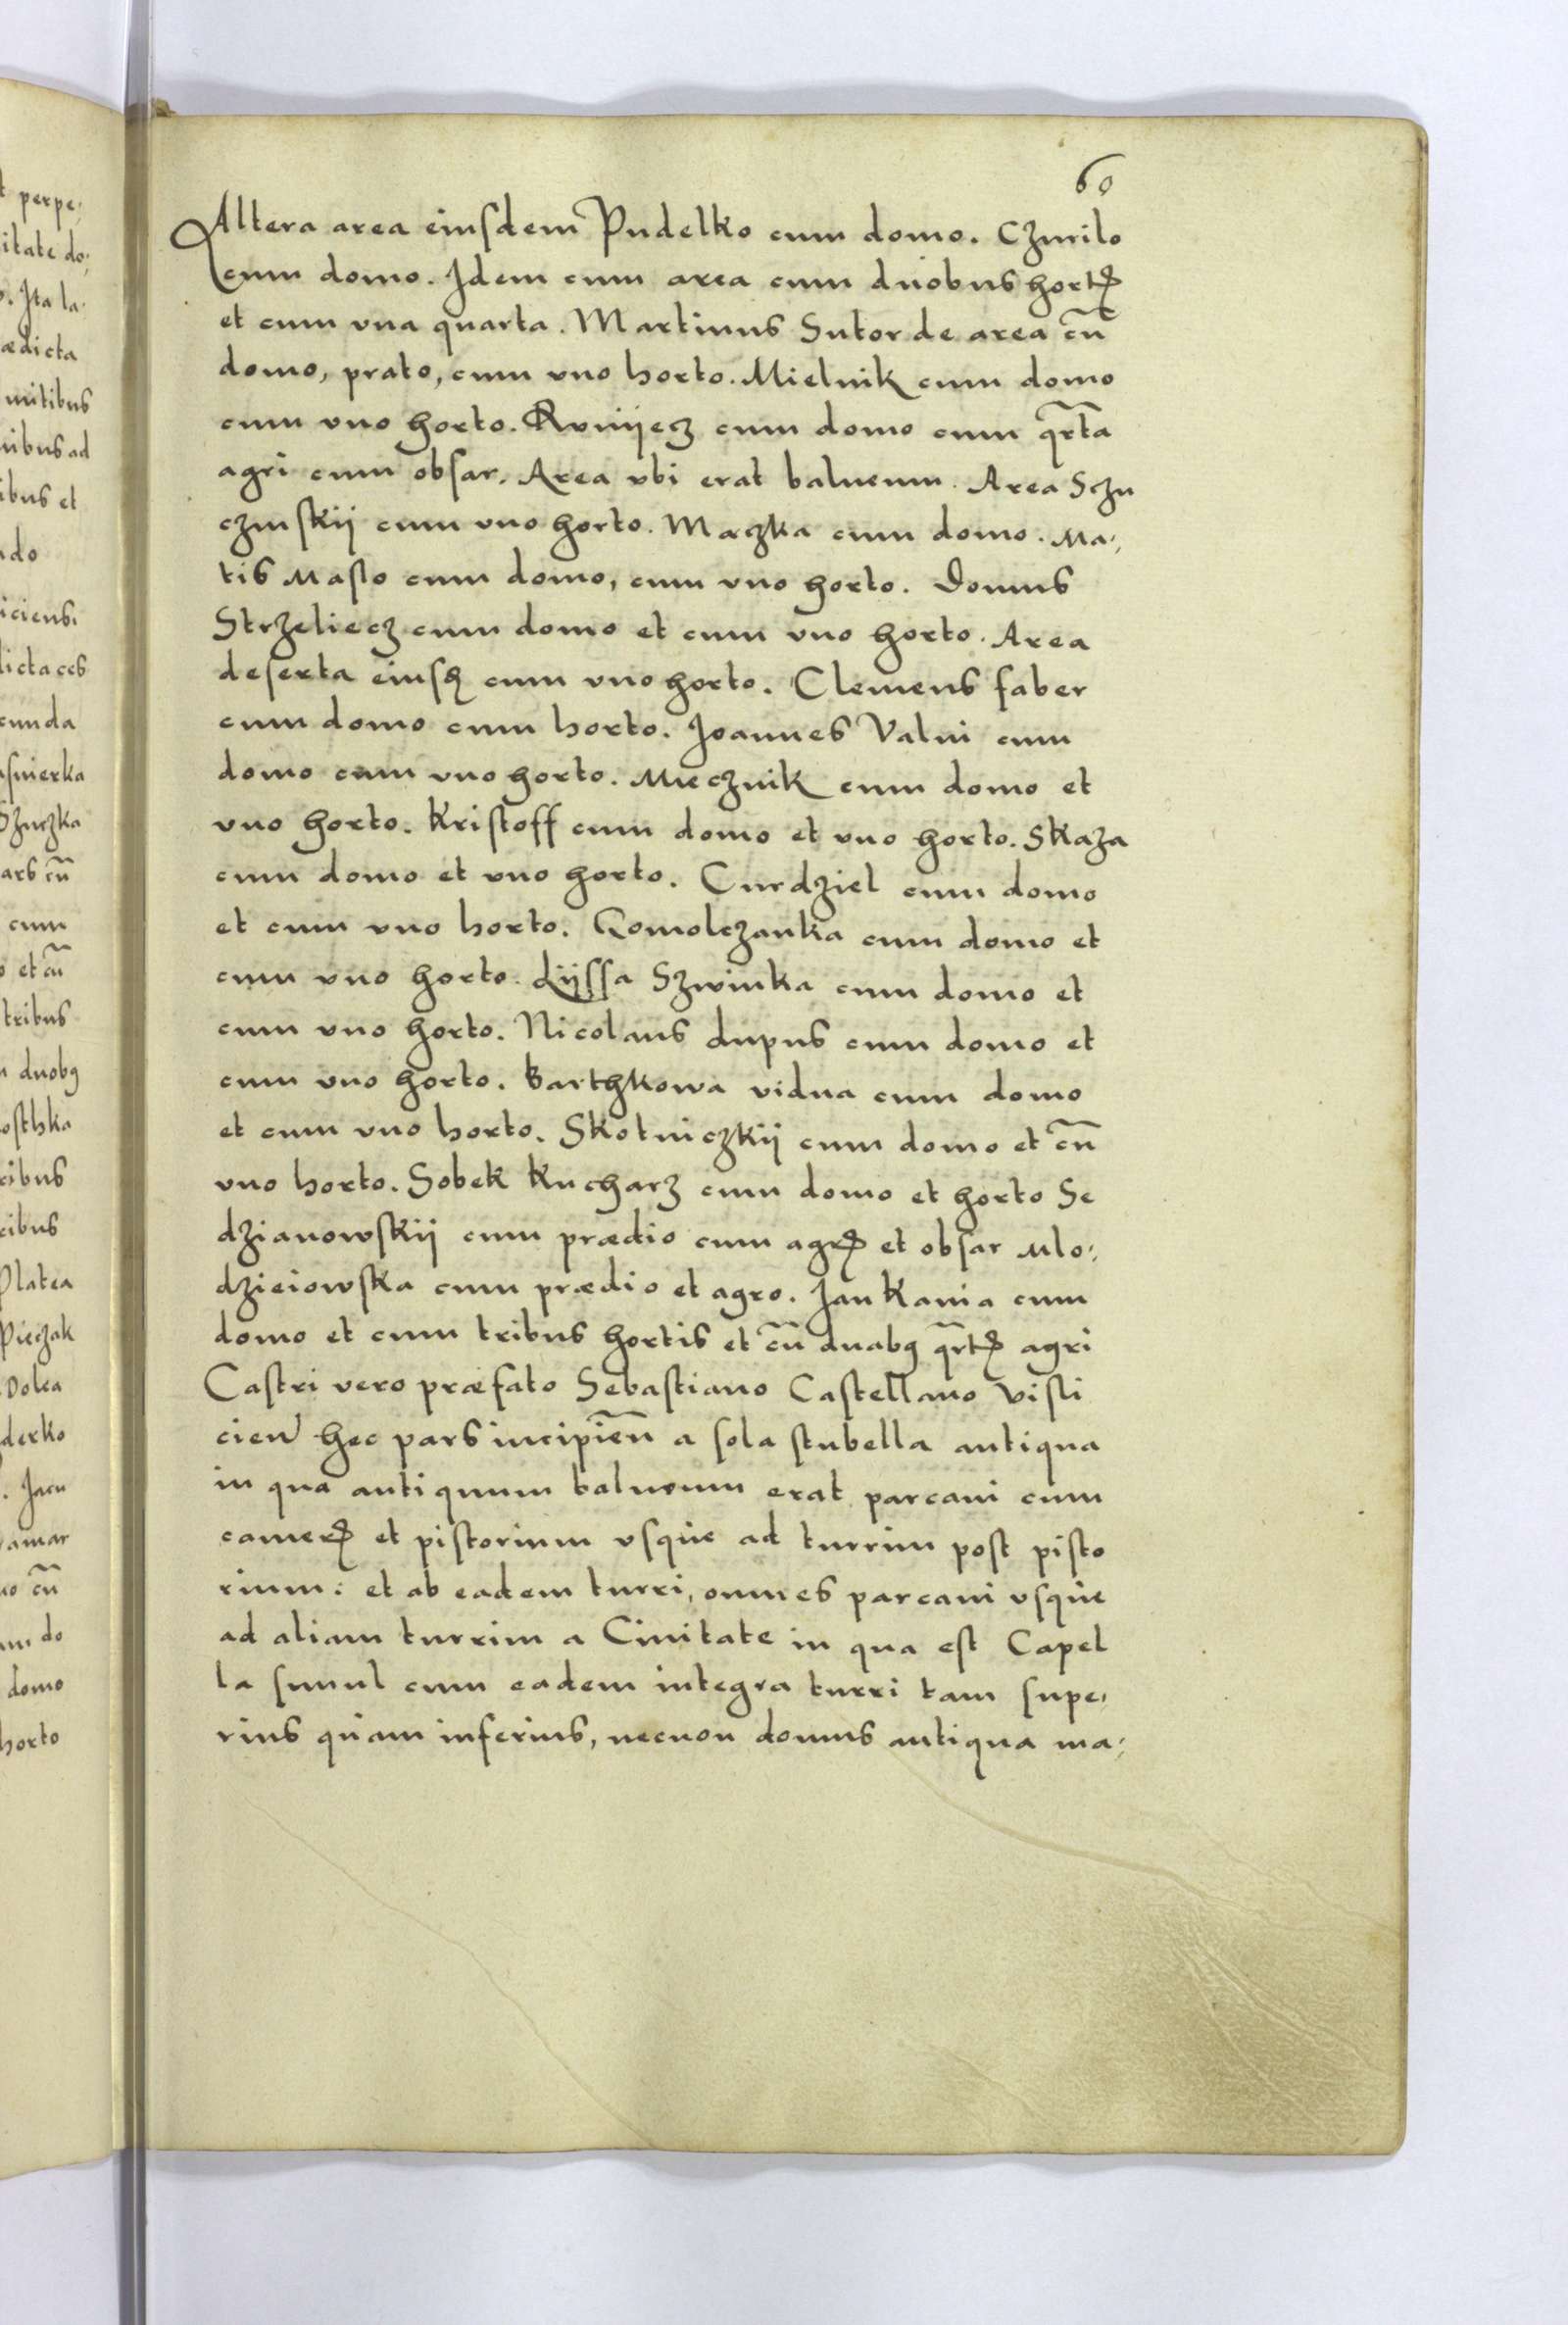 60
Altera area eiusdem Pudelko cum domo. Czurilo
cum domo. Idem cum area cum duobus hortꝭ
et cum vna quarta. Martinus Sutor de area cũ
domo, prato, cum vno horto. Mielnik cum domo
cum vno horto. cum domo cum qr̃ta
agri cum obsar. Area vbi erat balneum. Area Sczu
czinskij cum vno horto. Maczka cum domo. Ma⸗
tis Maslo cum domo, cum vno horto. Domus
Strzeliecz cum domo et cum vno horto. Area
deserta eiusꝫ cum vno horto. Clemens faber
cum domo cum horto. Joannes Valni cum
domo cum vno horto. Miecznik cum domo et
vno horto. Kristoff cum domo et vno horto. Skaza
cum domo et vno horto. Curdziel cum domo
et cum vno horto. Gomolczanka cum domo et
cum vno horto. Lijssa Szwinka cum domo et
cum vno horto. Nicolaus dupus cum domo et
cum vno horto. Barthkowa vidua cum domo
et cum vno horto. Skotniczkij cum domo et cũ
vno horto. Sobek Kucharz cum domo et horto Se
dzianowskij cum prædio cum agrꝭ et obsar Mlo⸗
dzieiowska cum prædio et agro. Jan Kania cum
domo et cum tribus hortis et cũ duabꝯ qr̃tꝭ agri
Castri vero præfato Sebastiano Castellano Visli
cieñ hec pars incipieñ a sola stubella antiqua
in qua antiquum balneum erat parcani cum
camerꝭ et pistorium vsque ad turrim post pisto
rium: et ab eadem turri, omnes parcani vsque
ad aliam turrim a Ciuitate in qua est Capel
la simul cum eadem integra turri tam supe⸗
rius quam inferius, necnon domus antiqua ma⸗